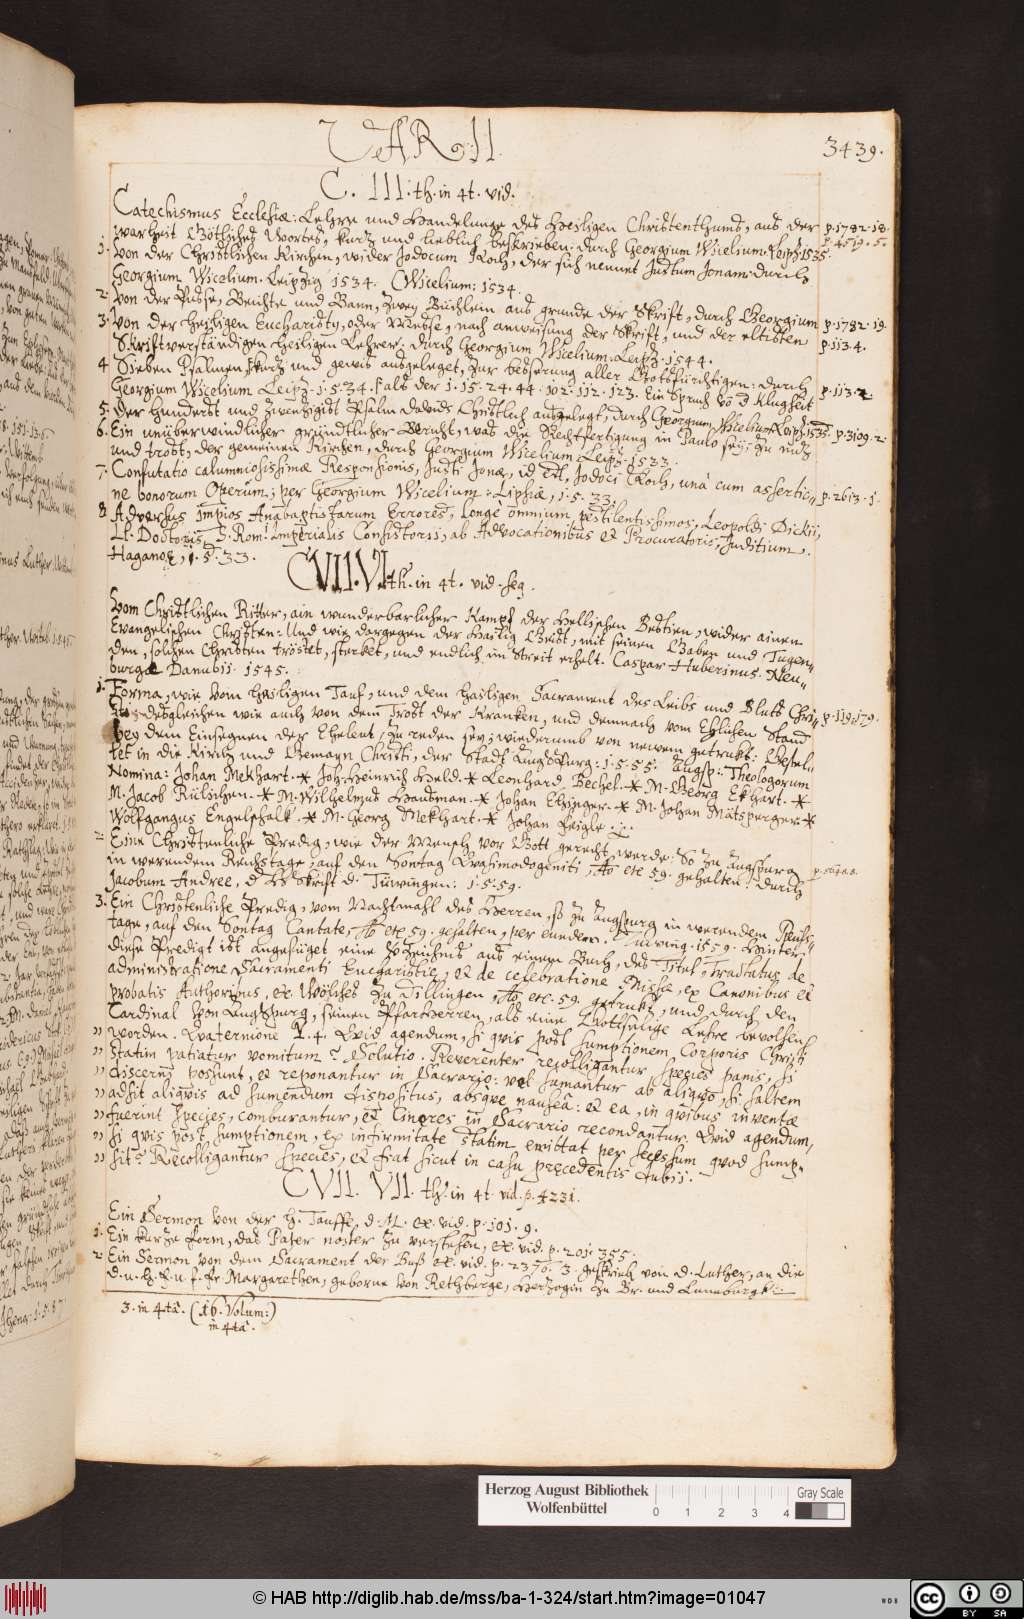 VARII
3439.
C. III. th. in 4t. vid.
Catechismus Ecclesiæ: Lehre und Handelunge des Heiligen Christenthums, aus der p. 1782. 18.
warheit Götliches Wortes, kurtz und lieblich beschrieben: durch Georgium Wicelium. Leipz. 1535. p. 4519. 5.
1. Von der Christlichen Kirchen, wider Jodocum Koch, der sich nennet Justum Jonam. durch
Georgium Wicelium. Leipzig 1534. (Wicelium: 1534.
2. Von der Busse, Beichte und Bann, zwey Büchlein aus grunde der Schrift, durch Georgium p. 1782. 19.
3. Von der Heiligen Eucharisty, oder Messe, nach anweisung der Schrift, und der eltisten p. 113. 4.
Schriftverständigen heiligen Lehrer. durch Georgium Wicelium. Leipz. 1544.
4 Sieben Psalmen, kurtz und gewis ausgeleget, zur besserung aller Gotsfürchtigen: durch
Georgium Wicelium Leipz. 1.5.34. Psalt der 1. 15. 24. 44. 102. 112. 123. Ein Spruch võ d Klugheit p. 113. 2.
5. Der hundert und zwenzigist Psalm Davids Christlich ausgelegt, durch Georgium Wicelium. Leipz. 1535.
6. Ein unüberwindlicher gründtlicher Bericht, was die Rechtfertigung in Paulo sey; zu nutz p. 3109. 2.
und trost, der gemeinen Kirchen, durch Georgium Wicelium Leipz. 1533.
7. Confutatio calumniosissimæ Responsionis, Justi Jonæ, id est, Jodoci Koch, unà cum assertio- p. 2613. 1.
ne bonorum Operum; per Georgium Wicelium: Lipsiæ, 1.5.33.
8 Adversus impios Anabaptistarum Errores, longè omnium pestilentissimos, Leopoldi Dickii,
LL. Doctoris, S. Rom. Imperialis Consistorii, ab Advocationibus et Procuratoris, Juditium.
Haganoę, 1.5.33.
CVII. VI. th. in 4t. vid. seq.
Vom Christlichen Ritter, ain wunderbarlicher Kampf der Hellischen Bestien, wider ainen
Evangelischen Christen: Und wie dargegen der Hailig Geist, mit seinen Gaben und Tugen-
den, solchen Christen tröstet, sterket, und endlich im Streit erhelt. Caspar Huberinus. Neu-
burgæ Danubii. 1545.
1. Forma, wie vom heiligen Tauf, und dem hailigen Sacrament des Leibs und Bluts Chri- p. 119. 179.
sti, desgleichen wie auch von dem Trost der Kranken, und demnach vom Ehlichen Stand
bey dem Einsegnen der Eheleut, zu reden sey; widerumb von newem getrukt: Gestel-
let in die Kirch und Gemayn Christi, der Stadt Augspurg: 1.5.55. Augsp: Theologorum
Nomina: Johan Mekhart. * Joh. Heinrich Held. * Leonhard Bechel. * M. Georg Ekhart. *
M. Jacob Rülichen. * M. Wilhelmus Hausman. * Johan Ehinger. * M. Johan Matsperger. *
Wolfgangus Engelschalk. * M. Georg Mekhart. * Johan Feigle.
2. Eine Christenliche Predig, wie der Mensch vor Gott gerecht werde: So zu Augspurg
in werendem Reichstage, auf den Sontag Quasimodogeniti, Ao etc 59. gehalten: durch
Jacobum Andree, d Hl. Schrift d. Tüwingen: 1.5.59.
3. Ein Christenliche Predig, vom Nachtmahl des Herren, so zu Augspurg in werendem Reichs-
tage, auf den Sontag Cantate, Ao etc 59. gehalten, per eundem. Tüwing. 1559. Hinter
diese Predigt ist angefüget eine Verzeichnis aus einem Buch, des Titel, Tractatus de
administratione Sacramenti Eucharistiæ, et de celebratione Missæ, ex Canonibus et
probatis Authoribus, etc. Wölches zu Dillingen, Ao etc. 59. getrukt, und durch den
Cardinal von Augspurg, seinen Pfarherren, als eine Gotselige Lehre bevolhen
" worden. Quaternione P. 4. Quid agendum, si quis post sumptionem, Corporis Christi
" statim patiatur vomitum? Solutio. Reverenter recolligantur species panis, si
" discerni possunt, et reponantur in Sacrario: vel sumantur ab aliquo, si saltem
" adsit aliquis ad sumendum dispositus, absque nausea: et ea, in quibus inventæ
" fuerint species, comburantur, et Cineres in Sacrario recondantur. Quid agendum,
" si quis post sumptionem, ex infirmitate statim emittat per secessum quod sump-
" sit? Recolligantur species, et fiat sicut in casu precedentis dubii.
CVII. VII. th. in 4t. vid. p. 4231.
Ein Sermon von der H. Tauffe, d. ML. etc. vid. p. 101. 9.
1. Ein kurze form, das Pater noster zu verstehen, etc. vid. p. 201. 355.
2. Ein Sermon von dem Sacrament der Buß etc. vid. p. 2376. 3. geschrieb. von d. Luther, an die
d. u. h. f. u. f. fr. Margarethen, geborne von Rethberge, Herzogin zu Br. und Lüneburgk.
3. in 4tâ. (16. Volum:)
in 4tâ.
Herzog August Bibliothek
Wolfenbüttel
0 1 2 3 4
Gray Scale
© HAB http://diglib.hab.de/mss/ba-1-324/start.htm?image=01047
WDB
cc BY SA